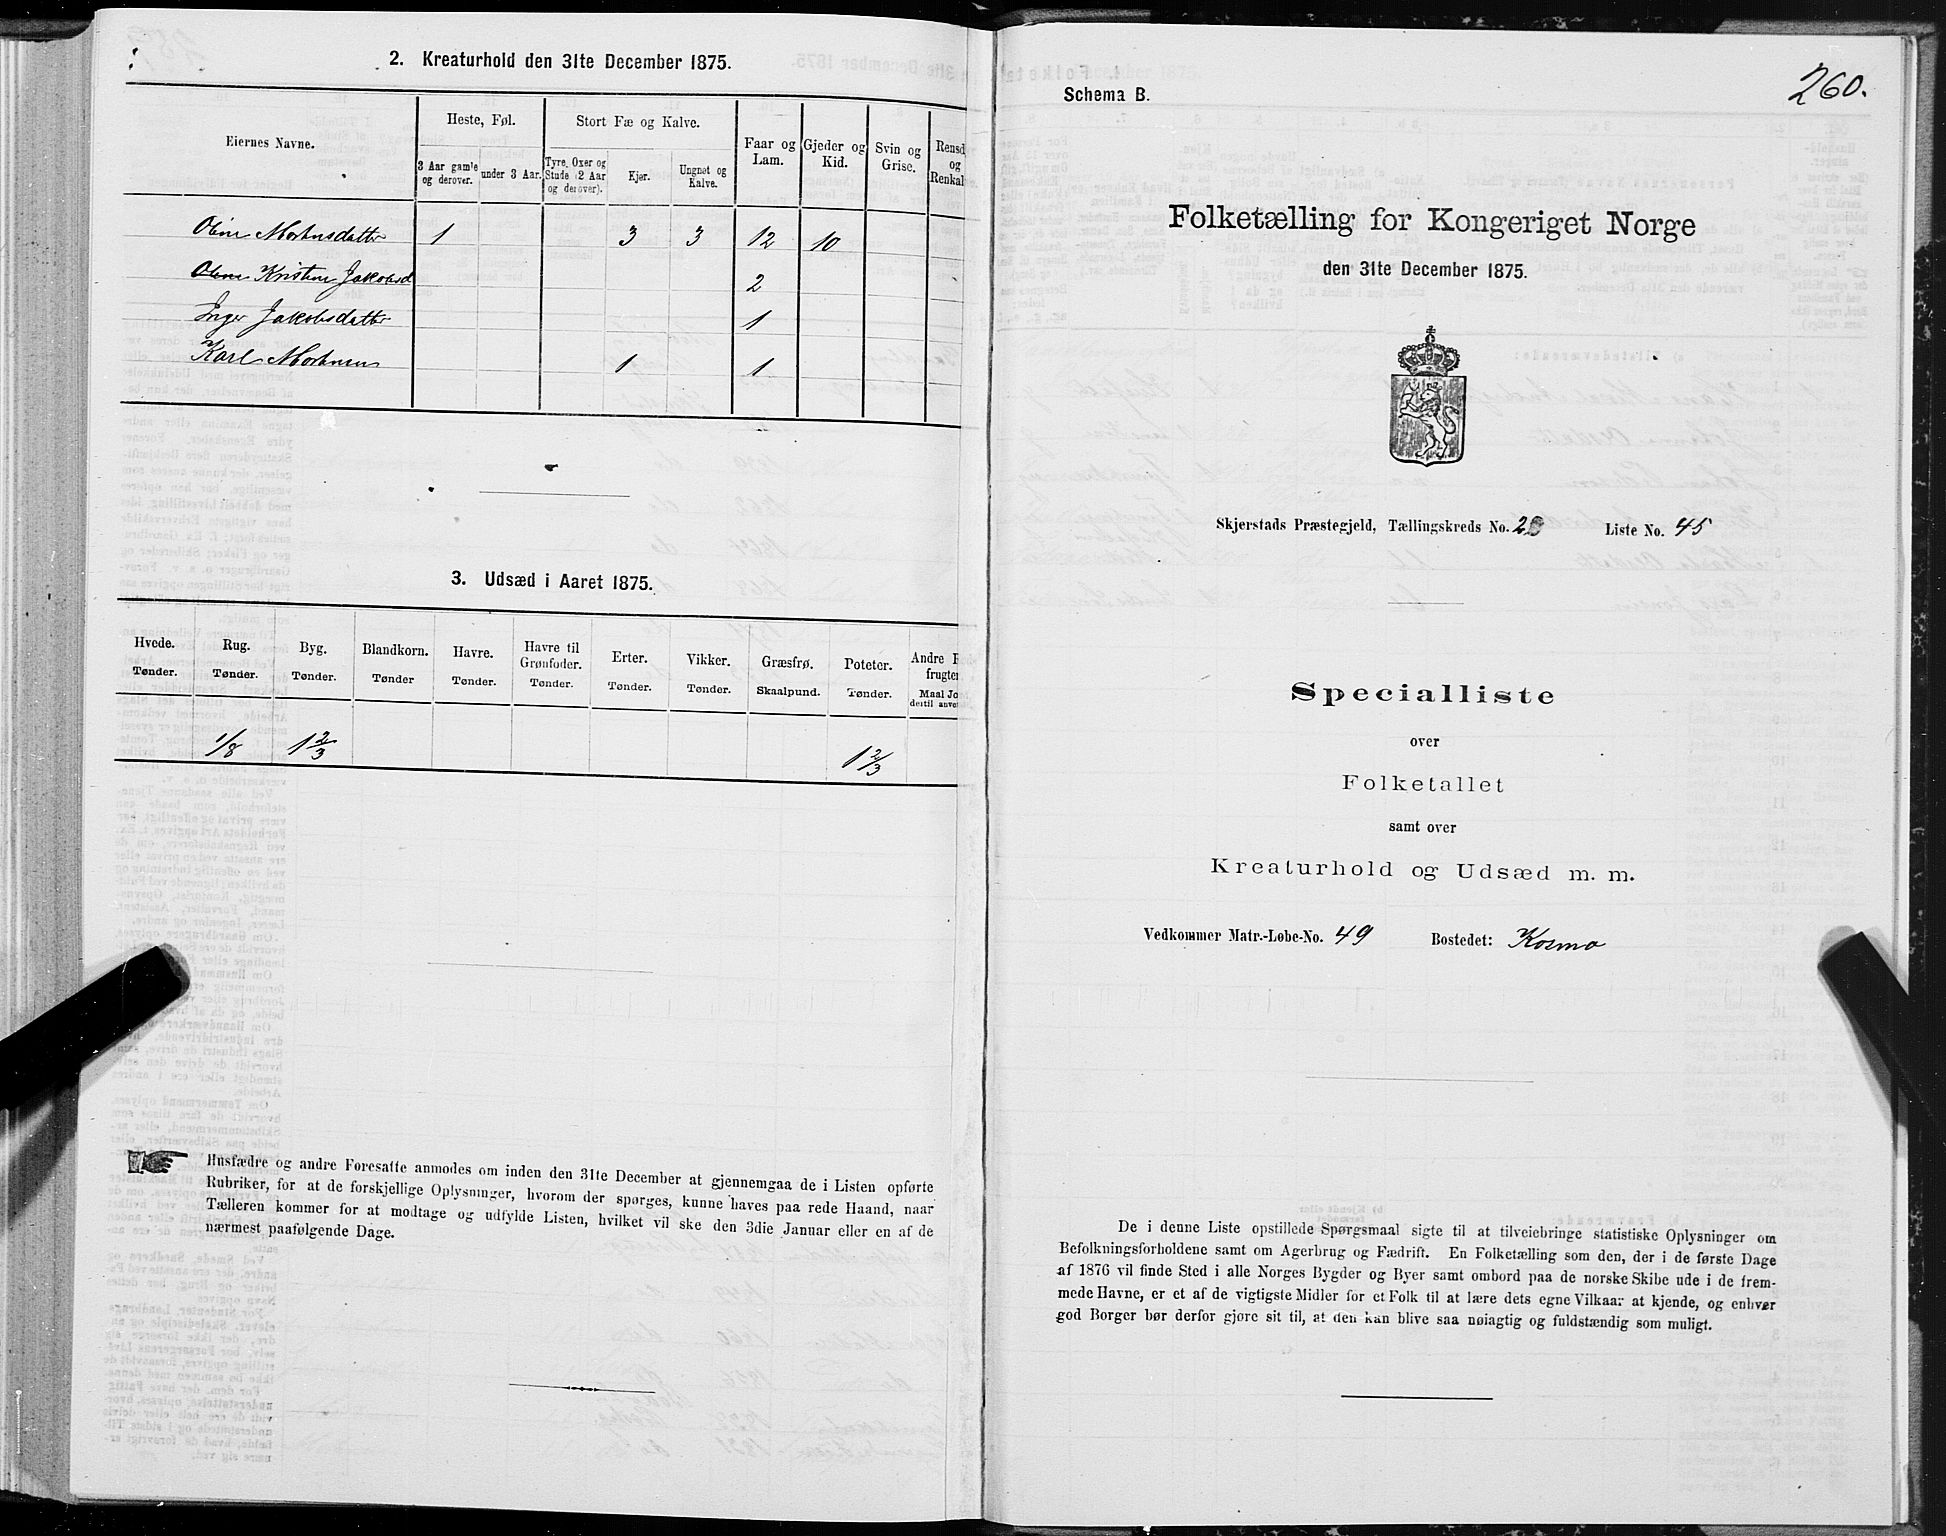 2. Kreaturhold den 31te December 1875.
Eiernes Navne.
Heste, Føl.
Stort Fæ og Kalve.
Faar og Lam.
Gjeder og Kid.
Svin og Grise.
Rensd
og
Renkal
3 Aar gamle og derover.
under 3 Aar.
Tyre, Oxer og Stude (2 Aar og derover).
Kjør.
Ungnøt og Kalve.
Oline Mortensdatter 1 3 3 12 10
Oline Kristine Jakobsd 2
Inger Jakobsdatter 1
Karl Mortensen 1 1
3. Udsæd i Aaret 1875.
Hvede. Rug. Byg. Blandkorn. Havre. Havre til Grønfoder. Erter. Vikker. Græsfrø. Poteter. Andre
frugter
Tønder. Tønder. Tønder. Tønder Tønder. Tønder. Tønder. Tønder. Skaalpund. Tønder. Maal Jo
dertil anve
1/8 1 2/3 1 2/3
Husfædre og andre Foresatte anmodes om inden den 31te December at gjennemgaa de i Listen opførte
Rubriker, for at de forskjellige Oplysninger, hvorom der spørges, kunne haves paa rede Haand, naar
Tælleren kommer for at modtage og udfylde Listen, hvilket vil ske den 3die Januar eller en af de
nærmest paafølgende Dage.
260.
Schema B.
Folketælling for Kongeriget Norge
den 31te December 1875.
Skjerstads Præstegjeld, Tællingskreds No. 2 Liste No. 45
Specialliste
over
Folketallet
samt over
Kreaturhold og Udsæd m. m.
Vedkommer Matr.-Løbe-No. 49 Bostedet: Kosmo
De i denne Liste opstillede Spørgsmaal sigte til at tilveiebringe statistiske Oplysninger om
Befolkningsforholdene samt om Agerbrug og Fædrift. En Folketælling som den, der i de første Dage
af 1876 vil finde Sted i alle Norges Bygder og Byer samt ombord paa de norske Skibe ude i de frem-
mede Havne, er et af de vigtigste Midler for et Folk til at lære dets egne Vilkaar at kjende, og enhver
god Borger bør derfor gjøre sit til, at den kan blive saa nøiagtig og fuldstændig som muligt.